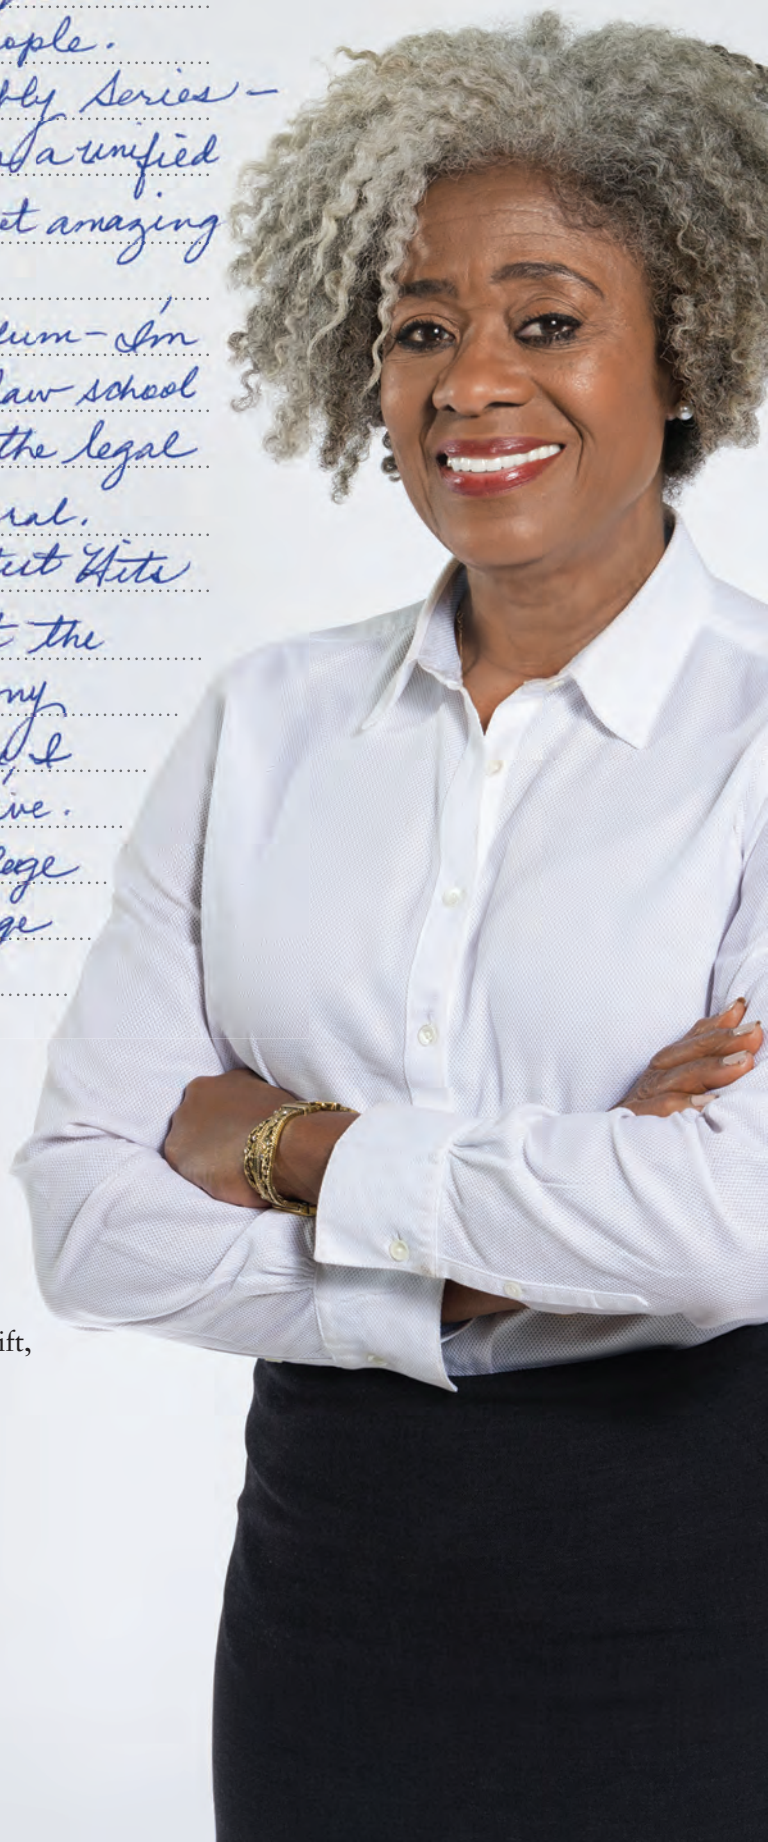 ople.
bly Series -
a unified
et amazing
eum - I'm
law school
the legal
ral.
test Hits
t the
ny
I
ive.
lege
ge
ift,